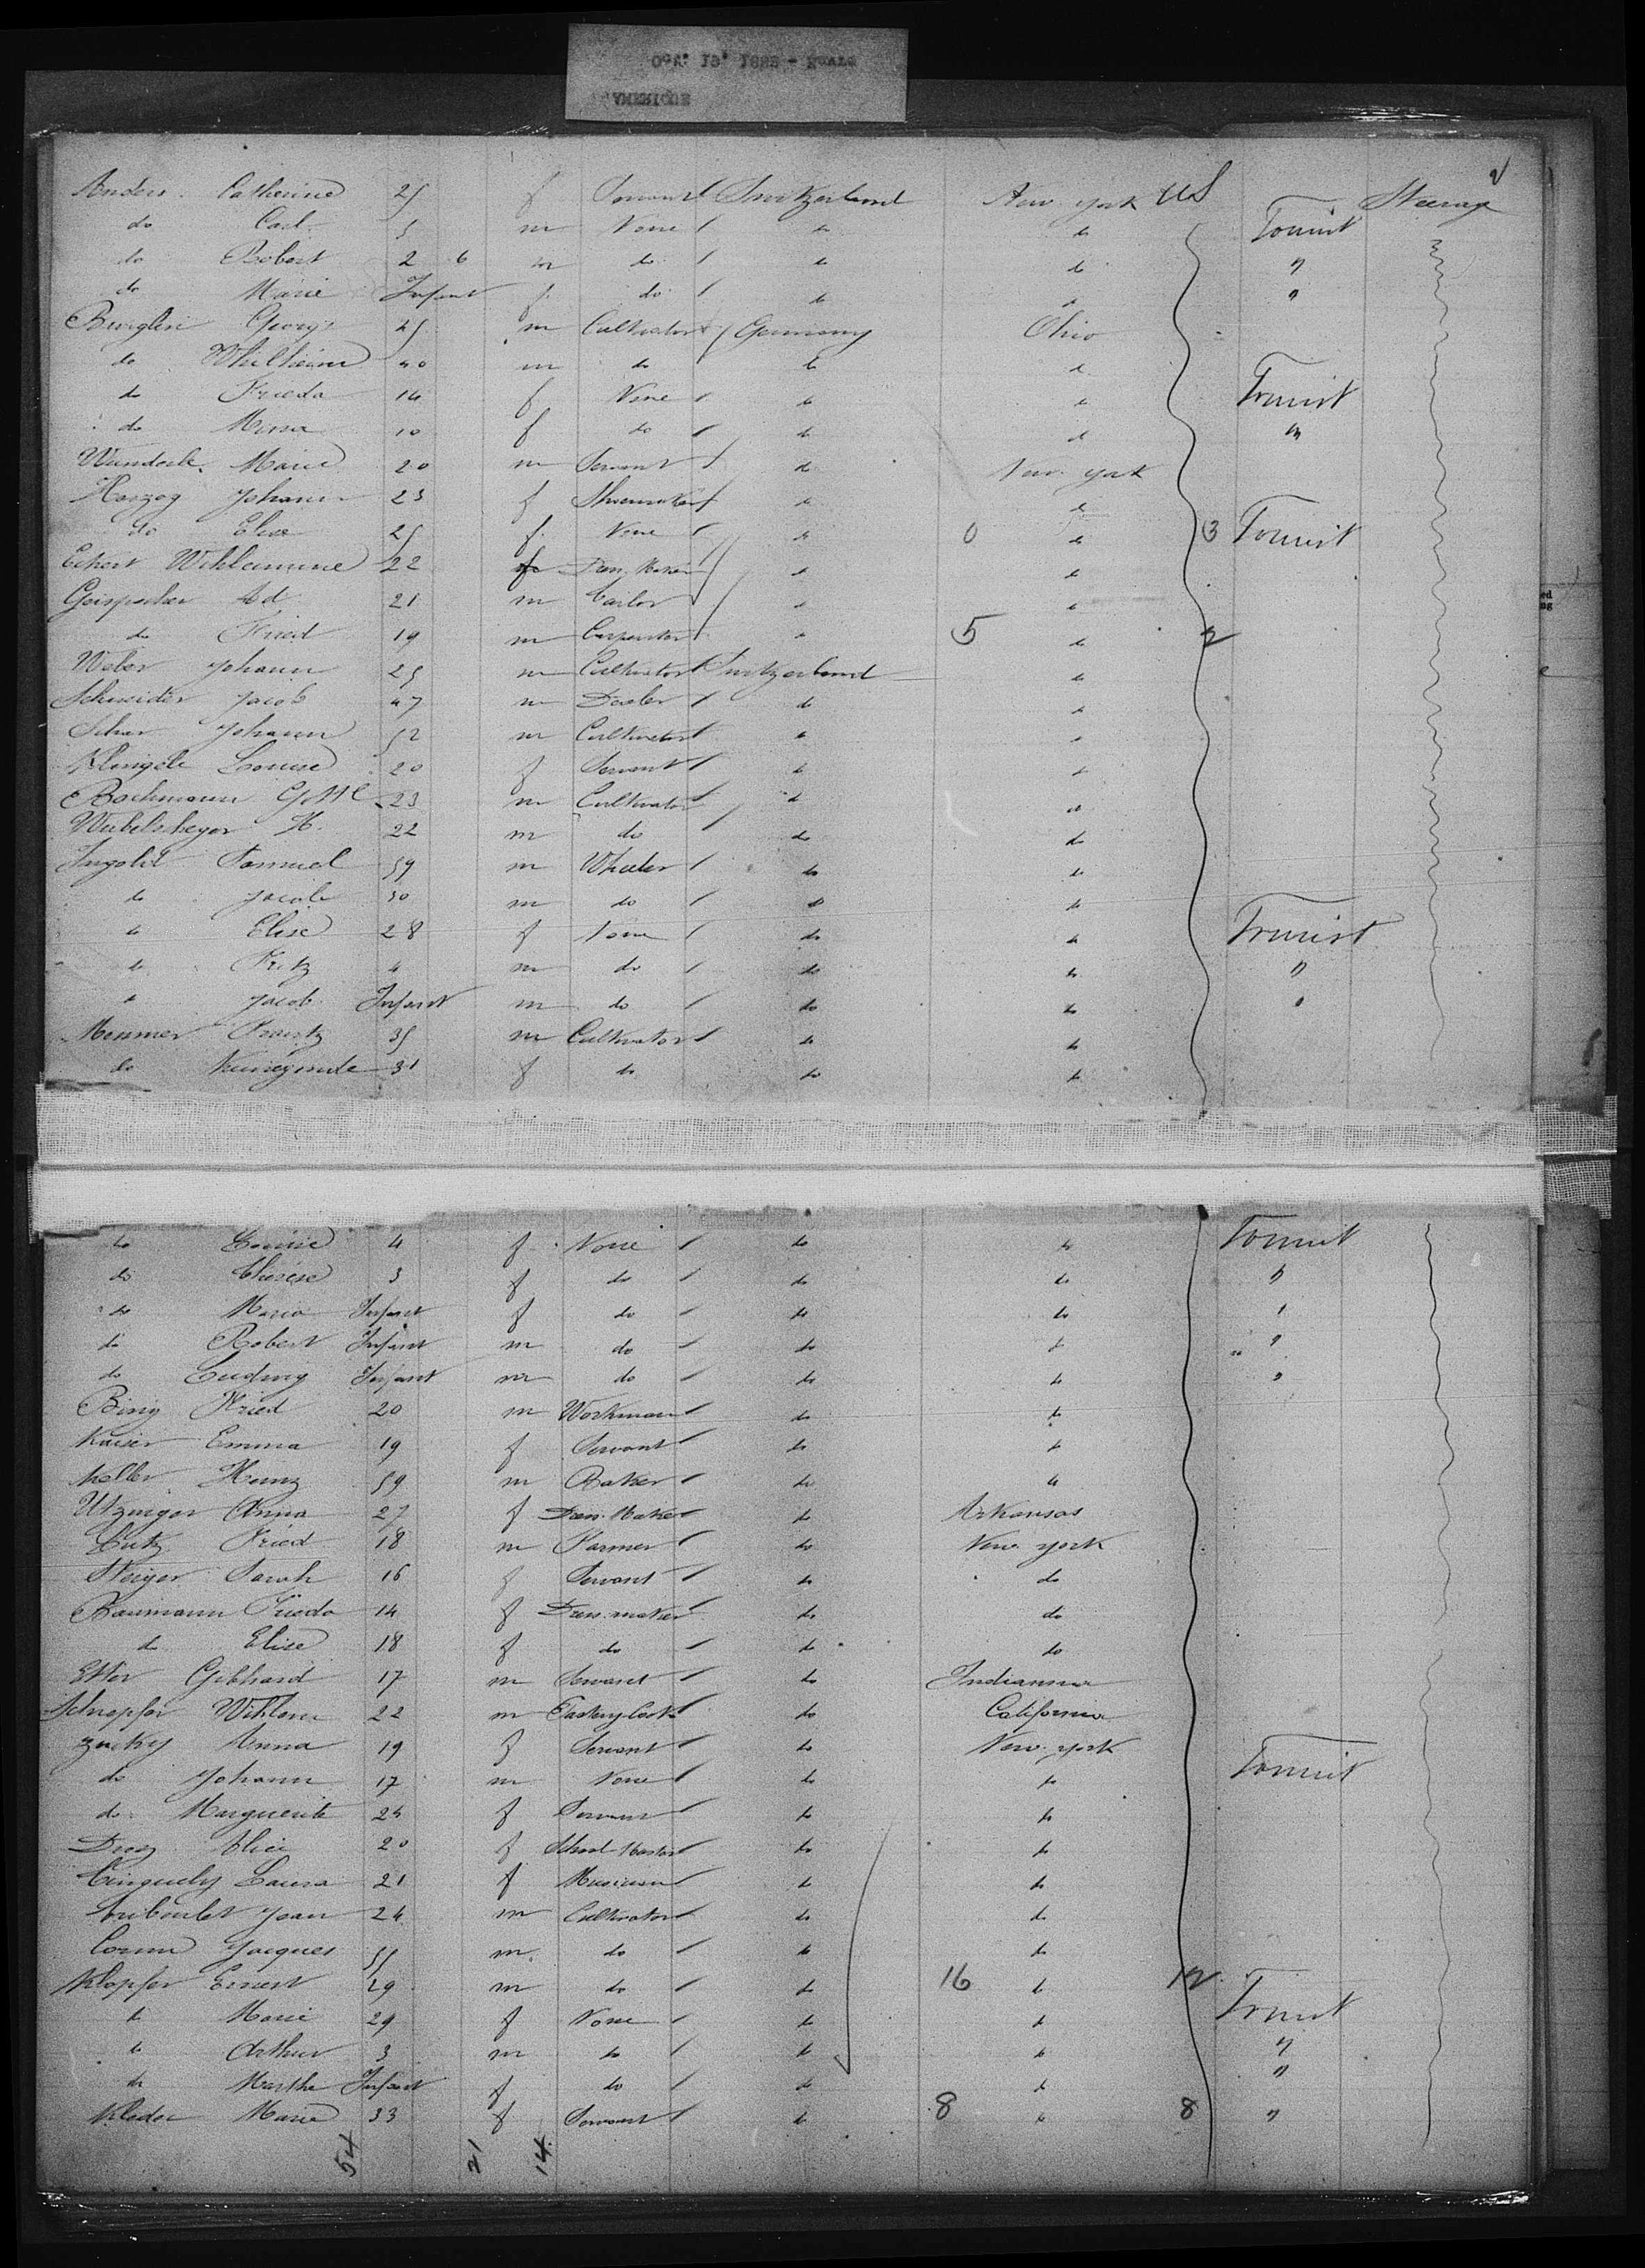 Anders Catherine 25 f Servant Switzerland New York US Steerage
do Carl 5 m None do do Tourist
do Robert 2 6 m do do do "
do Marie Infant f do do do "
Georg 25 m Cultivator Germany Ohio
do Whilheim 40 m do do do
do Frieda 14 f None do do Tourist
do Mina 10 f do do do "
Marie 20 m Servant do New York
Herzog Johann 23 f Shoemaker do do
do Elise 25 f None do 0 do 3 Tourist
Eckert Wihlemine 22 f Dres. Maker do do
Ad 21 m Tailor do do
do Fried 19 m Carpenter do 5 do 2
Weber Johann 25 m Cultivator Switzerland do
Schneider Jacob 47 m Dealer do do
Schar Johann 52 m Cultivator do do
Klengele Louise 20 f Servant do do
Bachmann 23 m Cultivator do do
H. 22 m do do do
Ingold Samuel 59 m Wheeler do do
do Jacob 30 m do do do
do Elise 28 f None do do Tourist
do Fritz 4 m do do do "
do Jacob Infant m do do do "
Frantz 35 m Cultivator do do
do Kunegunde 31 f do do do
do Louise 4 f None do do Tourist
do Therese 3 f do do do "
do Maria Infant f do do do "
do Robert Infant m do do do "
do Ludwig Infant m do do do "
Bing Fried 20 m Workman do do
Kaiser Emma 19 f Servant do do
Keller Heinz 59 m Baker do do
Utzinger Anna 27 f Dres. Maker do Arkansas
Lutz Fried 18 m Farmer do New York
Steiger Sarah 16 f Servant do do
Baumann Frieda 14 f Dres. maker do do
do Elise 18 f do do do
Etter Gebhard 17 m Servant do Indianna
Schnepfer Wihlem 22 m do California
Anna 19 f Servant do New York
do Johann 17 m None do do Tourist
do Marguerite 24 f Servant do do
Droz Alice 20 f School Master do do
Cinguely Laura 21 f Musician do do
Jean 24 m Cultivator do do
Jacques 55 m do do do
Klopfer Ernest 29 m do do 16 do 12
do Marie 29 f None do do Tourist
do Arthur 3 m do do do "
do Marthe Infant f do do do "
Marie 33 f Servant do 8 do 8 "
54 21 14